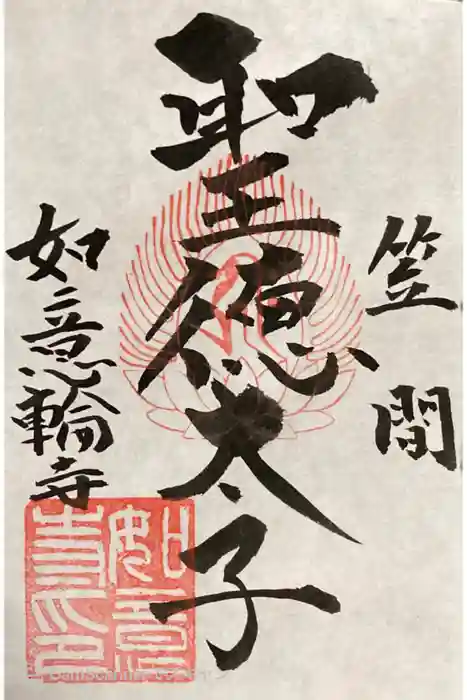 笠間
聖徳太子
如意輪寺